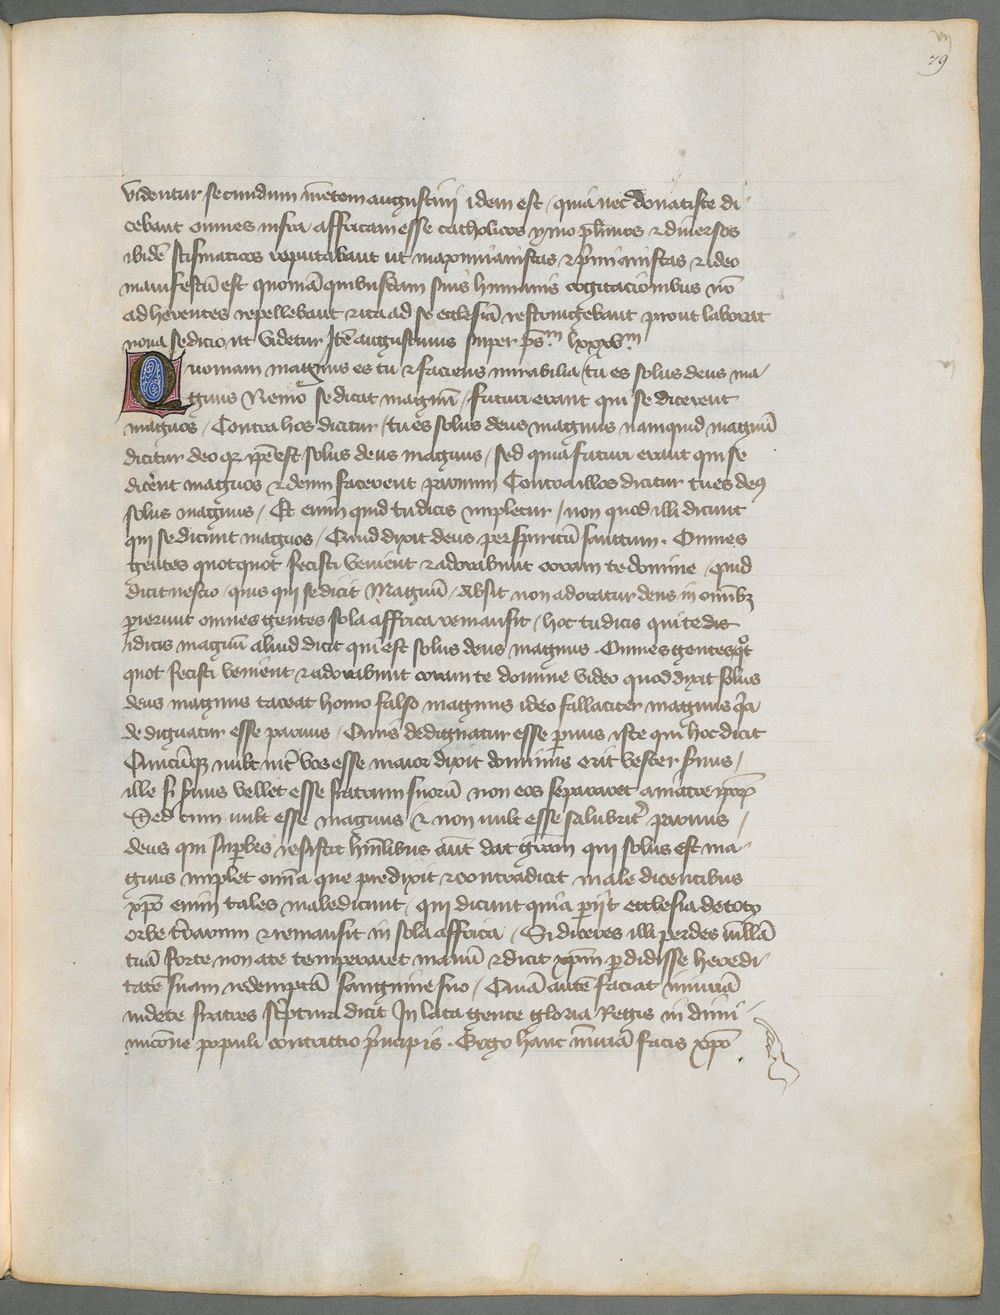 vij
79
videntur secundum mẽtem augustini idem est / quia nec donatiste di
cebant omnes infra affricam esse catholicos ymo pl̃imos & diuersos
ibidẽ scismaticos reputabant ut maximianistas & p̃mianistas & ideo
manifestũ est quoniã quibusdam suis humanis cogitacionibus nõ
adherentes repellebant & ita ad se ecclesiã restringebant prout laborat
noua sedicio ut videtur Itẽ augustinus super ps̃m lxxxvm
Quoniam magnus es tu & faciens mirabilia / tu es solus deus ma-
gnus Nemo se dicat magnũ / futuri erant qui se dicerent
magnos / Contra hos dicitur / tu es solus deus magnus namquid magnũ
dicitur deo qz ip̃e est solus deus magnus / sed quia futuri erant qui se
dic̃ent magnos & deum facerent paruum Contra illos dicitur tu es deus
solus magnus / Et enim quid tu dicis impletur / non quod illi dicunt
qui se dicunt magnos / Quid dixit deus per spiritũ sanctum . Omnes
gentes quotquot fecisti venient & adorabunt coram te domine / quid
dicit nescio quis qui se dicit Magnũ / Absit non adoratur deus in omibz
perierunt omnes gentes sola affrica remansit / hoc tu dicis qui te dic
is dicis magnũ aliud dicit qui est solus deus magnus . Omnes gentes qot
quot fecisti venient & adorabunt coram te domine video quod dixit solus
deus magnus taceat homo falso magnus ideo fallaciter magnus q̃a
dedignatur esse paruus / Quis dedignatur esse p̃uus iste qui hoc dicit
Quicũqz uult int̃ vos esse maior dixit dominus erit vester s̃uus /
ille si s̃uus vellet esse fratrum suorũ non eos separaret a matre ipor̃
Sed cum uult esse magnus & non uult esse salubrit̃ paruus /
deus qui sup̃bis resistit hũilibus aũt dat gr̃am qui solus est ma-
gnus implet om̃ia que predixit & contradicit male dicentibus
xp̃o enim tales maledicunt / qui dicunt quia periit ecclesia de toto
orbe t̃rarum & remansit in sola affrica / Si diceres illi perdes uillã
tuã forte non a te temperaret manũ & dicit xp̃m perdidisse heredi-
tatẽ suam redemptã sanguine suo / Quã autẽ faciat iniuriã
uidete fratres sc̃ptura dicit In lata gente gloria Regis in dimi-
nucõne populi contritio p̃ncipis . Ergo hanc iniuriã facis xp̃o